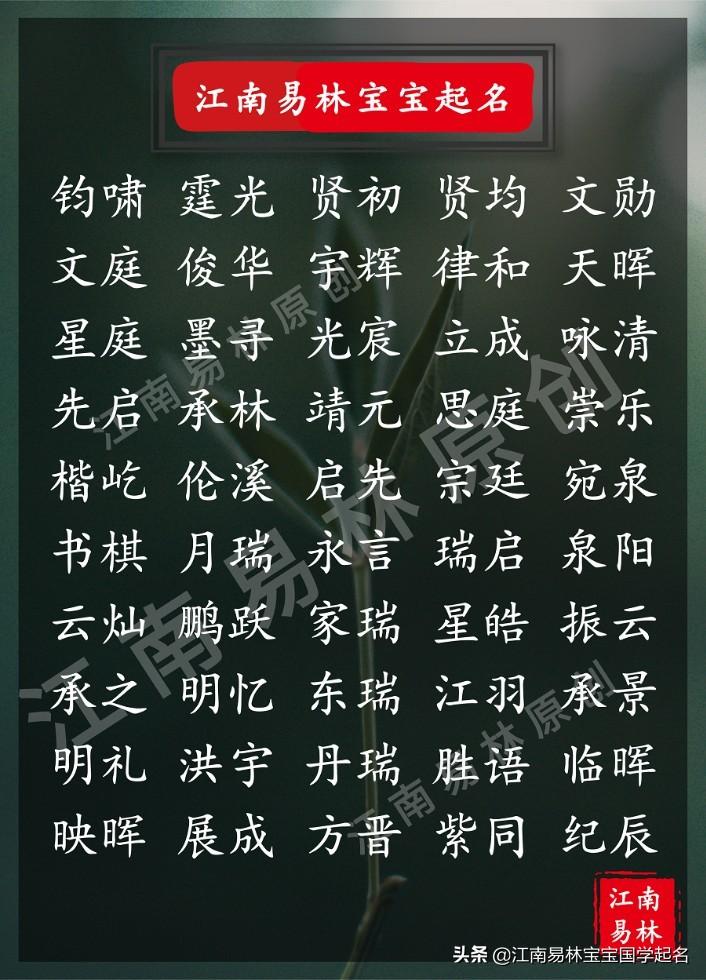 江南易林宝宝起名
钧啸 霆光 贤初 贤均 文勋
文庭 俊华 宇辉 律和 天晖
星庭 墨寻 光宸 立成 咏清
先启 承林 靖元 思庭 崇乐
楷屹 伦溪 启先 宗廷 宛泉
书棋 月瑞 永言 瑞启 泉阳
云灿 鹏跃 家瑞 星皓 振云
承之 明忆 东瑞 江羽 承景
明礼 洪宇 丹瑞 胜语 临晖
映晖 展成 方晋 紫同 纪辰
江南易林原创
江南易林原创
江南易林原创
江南
易林
头条 @江南易林宝宝国学起名